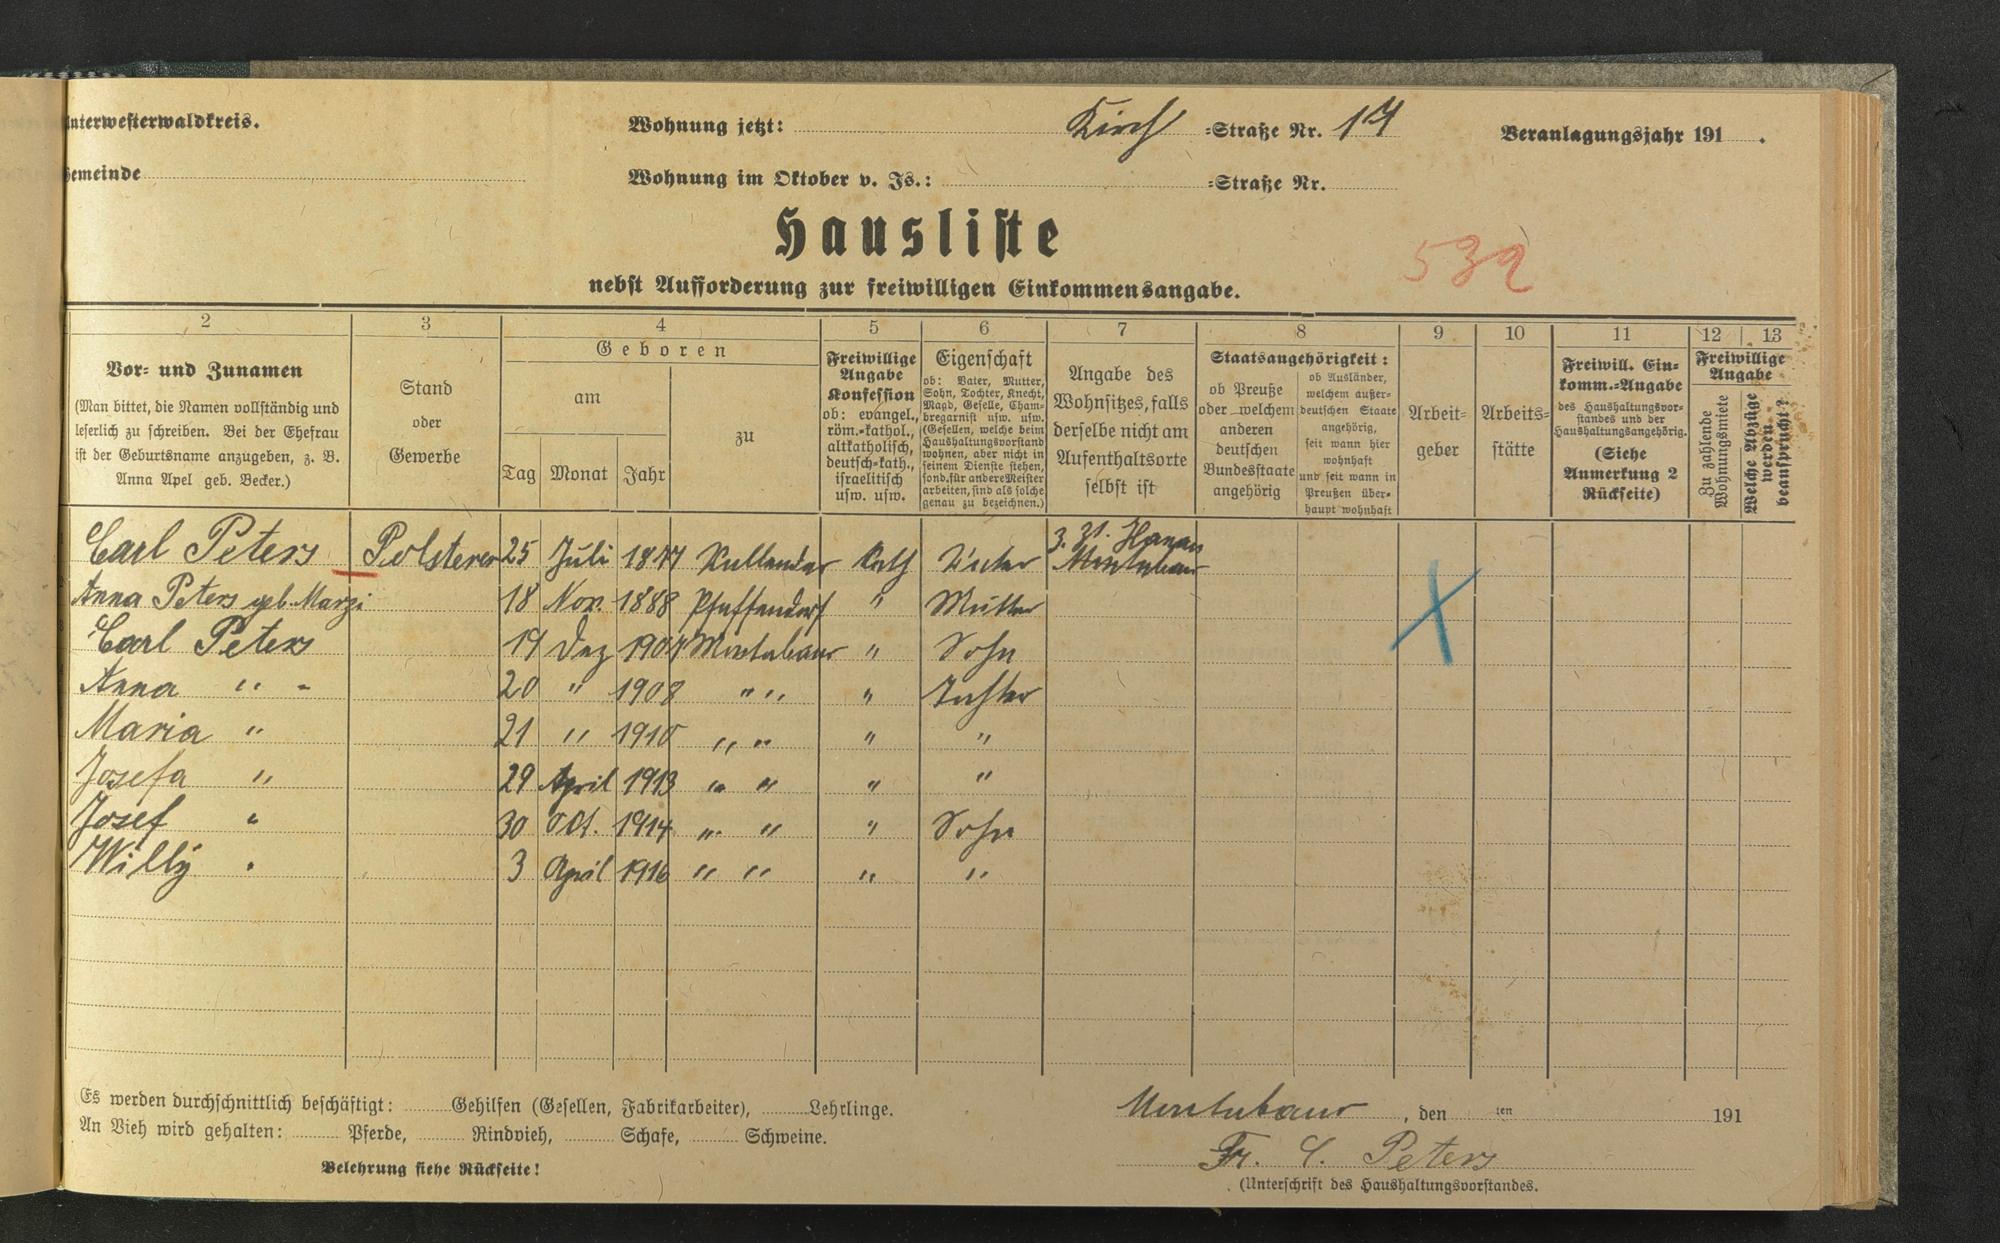 Unterwesterwaldkreis.
Wohnung jetzt: Kirch =Straße Nr. 14
Veranlagungsjahr 191 .
Gemeinde
Wohnung im Oktober v. Js.: =Straße Nr.
Hausliste
532
nebst Aufforderung zur freiwilligen Einkommensangabe.
2 3 4 5 6 7 8 9 10 11 12 13
Vor- und Zunamen
(Man bittet, die Namen vollständig und
leserlich zu schreiben. Bei der Ehefrau
ist der Geburtsname anzugeben, z. B.
Anna Apel geb. Becker.)
Stand
oder
Gewerbe
Geboren
am
Tag Monat Jahr
zu
Freiwillige
Angabe
Konfession
ob: evangel.,
röm.-kathol.,
altkatholisch,
deutsch-kath.,
israelitisch
usw. usw.
Eigenschaft
ob: Vater, Mutter,
Sohn, Tochter, Knecht,
Magd, Geselle, Cham-
bregarnist usw. usw.
(Gesellen, welche beim
Haushaltungsvorstand
wohnen, aber nicht in
seinem Dienste stehen,
sond. für andere Meister
arbeiten, sind als solche
genau zu bezeichnen.)
Angabe des
Wohnsitzes, falls
derselbe nicht am
Aufenthaltsorte
selbst ist
Staatsangehörigkeit:
ob Preuße
oder welchem
anderen
deutschen
Bundesstaate
angehörig
ob Ausländer,
welchem außer-
deutschen Staate
angehörig,
seit wann hier
wohnhaft
und seit wann in
Preußen über-
haupt wohnhaft
Arbeit-
geber
Arbeits-
stätte
Freiwill. Ein-
komm.-Angabe
des Haushaltungsvor-
standes und der
Haushaltungsangehörig.
(Siehe
Anmerkung 2
Rückseite)
Freiwillige
Angabe
Zu zahlende
Wohnungsmiete
Welche Abzüge
werden
beansprucht?
3. Zt. Hanau
Carl Peters Polsterer 25 Juli 1877 Vallendar Kath Vater Montabaur
Anna Peters geb. Marzi 18 Nov. 1888 Pfaffendorf " Mutter
Carl Peters 19 Dez 1907 Montabaur " Sohn
Anna " - 20 " 1908 " " " Tochter
Maria " 21 " 1910 " " " "
Josefa " 29 April 1913 " " " "
Josef " 30 Oct. 1914 " " " Sohn
Willy " 3 April 1916 " " " "
Es werden durchschnittlich beschäftigt: Gehilfen (Gesellen, Fabrikarbeiter), Lehrlinge.
An Vieh wird gehalten: Pferde, Rindvieh, Schafe, Schweine.
Belehrung siehe Rückseite!
Montabaur , den ten 191
Fr. C. Peters
(Unterschrift des Haushaltungsvorstandes.